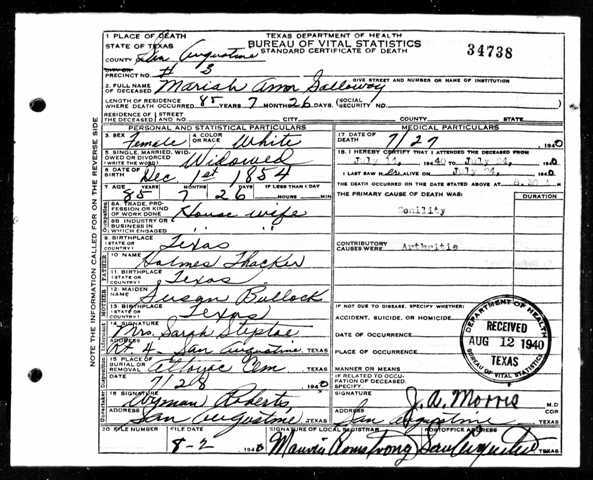 TEXAS DEPARTMENT OF HEALTH
BUREAU OF VITAL STATISTICS
STANDARD CERTIFICATE OF DEATH
34738
1 PLACE OF DEATH
STATE OF TEXAS
COUNTY OF San Augustine
CITY OR PRECINCT NO. # 3
GIVE STREET AND NUMBER OR NAME OF INSTITUTION
2. FULL NAME OF DECEASED Mariah Ann Galloway
LENGTH OF RESIDENCE WHERE DEATH OCCURRED 85 YEARS 7 MONTHS 26 DAYS. (SOCIAL SECURITY NO.
RESIDENCE OF THE DECEASED STREET AND NO. CITY COUNTY STATE
PERSONAL AND STATISTICAL PARTICULARS
3. SEX Female
4. COLOR OR RACE White
5. SINGLE, MARRIED, WIDOWED OR DIVORCED (WRITE THE WORD) Widowed
6. DATE OF BIRTH Dec 1st 1854
7. AGE YEARS MONTHS DAYS IF LESS THAN 1 DAY
85 7 26 HOURS MIN
8A. TRADE, PROFESSION OR KIND OF WORK DONE House wife
8B. INDUSTRY OR BUSINESS IN WHICH ENGAGED " "
9. BIRTHPLACE (STATE OR COUNTRY) Texas
10. NAME Holmes Thacker
11. BIRTHPLACE (STATE OR COUNTRY) Texas
12. MAIDEN NAME Susan Bullock
13. BIRTHPLACE (STATE OR COUNTRY) Texas
14. SIGNATURE Mrs. Sarah Steptoe
ADDRESS Rt 4. San Augustine, TEXAS
15. PLACE OF BURIAL OR REMOVAL Attoyac Cem TEXAS
DATE 7/28 1940
16. SIGNATURE Wyman Roberts,
ADDRESS San Augustine, TEXAS
MEDICAL PARTICULARS
17. DATE OF DEATH 7/27 1940
18. I HEREBY CERTIFY THAT I ATTENDED THE DECEASED FROM
July 14, 1940 TO July 24, 1940
I LAST SAW ALIVE ON July 24, 1940
THE DEATH OCCURRED ON THE DATE STATED ABOVE AT M.
THE PRIMARY CAUSE OF DEATH WAS: DURATION
Senility
CONTRIBUTORY CAUSES WERE: Arthritis
IF NOT DUE TO DISEASE, SPECIFY WHETHER:
ACCIDENT, SUICIDE, OR HOMICIDE
DATE OF OCCURRENCE
PLACE OF OCCURRENCE
MANNER OR MEANS
IF RELATED TO OCCUPATION OF DECEASED, SPECIFY
DEPARTMENT OF HEALTH
RECEIVED
AUG 12 1940
TEXAS
BUREAU OF VITAL STATISTICS
SIGNATURE J. A. Morris M.D.
ADDRESS San Augustine TEXAS
20. FILE NUMBER FILE DATE SIGNATURE OF LOCAL REGISTRAR POSTOFFICE ADDRESS
8-2 1940 Armstrong San Augustine TEXAS
NOTE THE INFORMATION CALLED FOR ON THE REVERSE SIDE